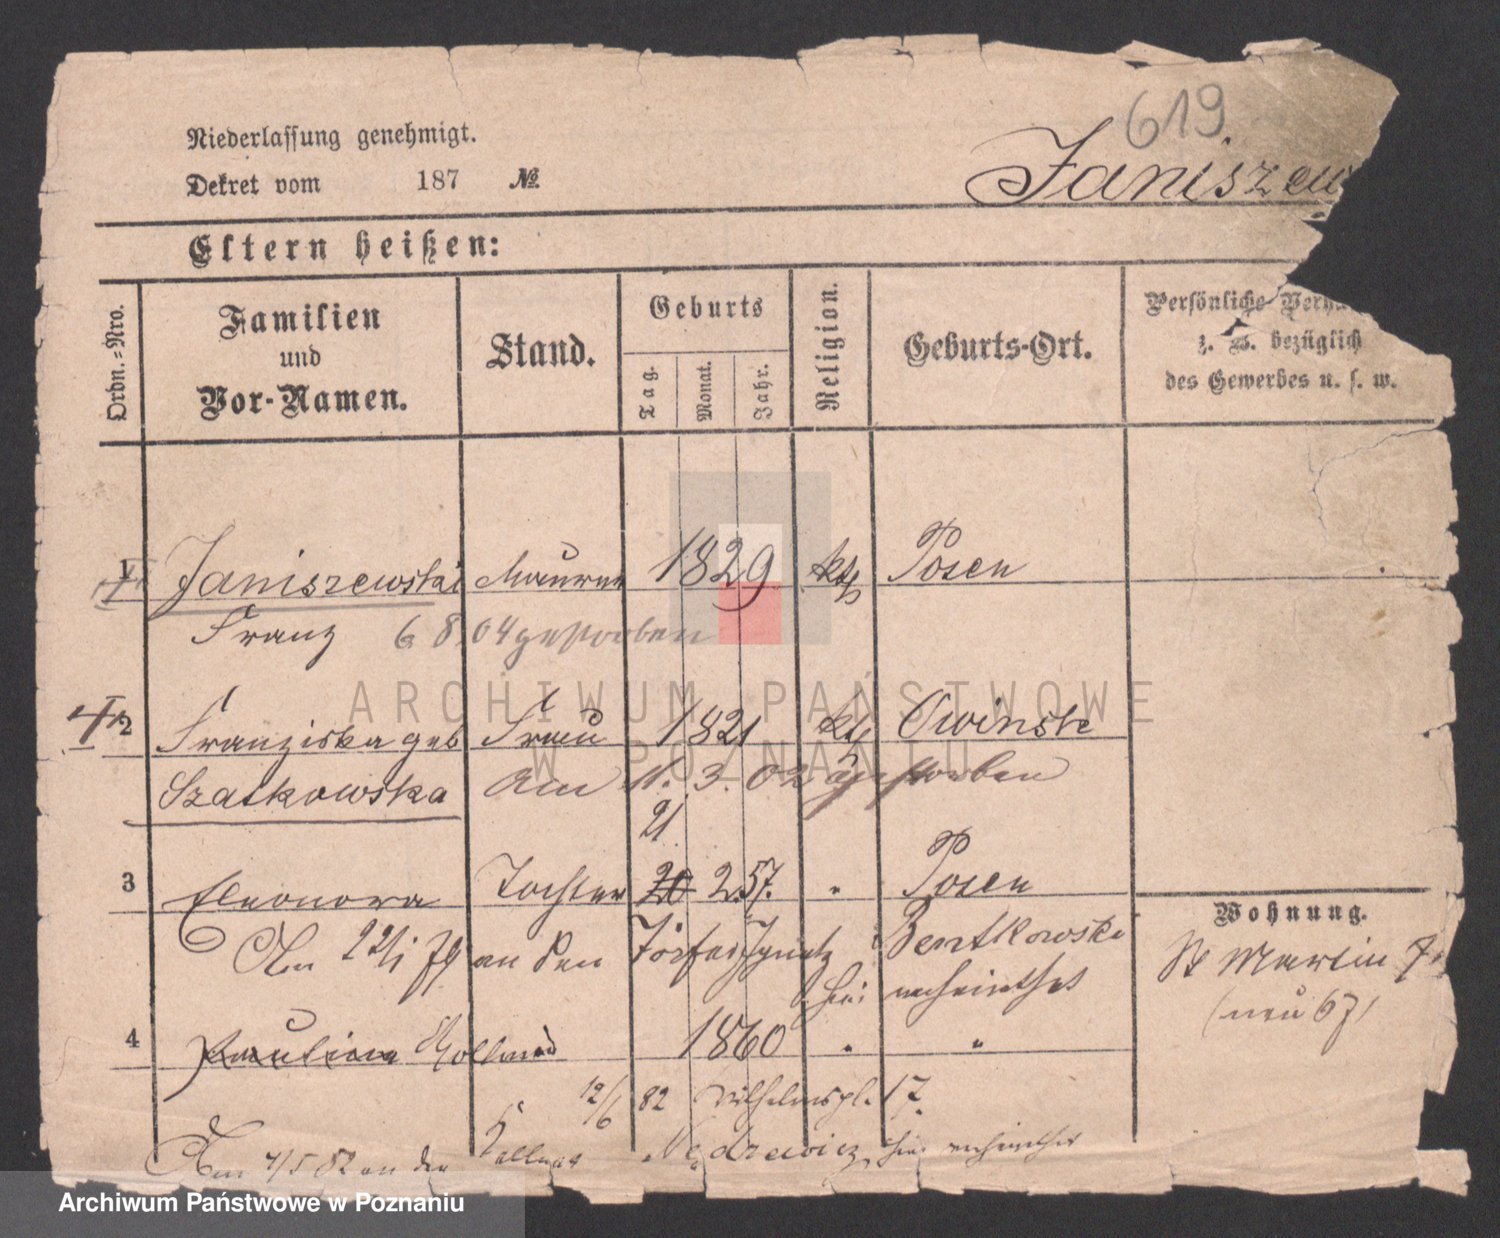 619
Niederlassung genehmigt.
Dekret vom 187 №
Janiszew
Eltern heißen:
Ordn.-Nro.
Familien
und
Vor-Namen.
Stand.
Geburts
Tag.
Monat.
Jahr.
Religion.
Geburts-Ort.
Persönliche Verh
z. B. bezüglich
des Gewerbes u. s. w.
1 Janiszewski Maurer 1829 kth Posen
Franz 6 8. 04 gestorben
2 Franziska geb Frau 1821 kth Owinsk
Szatkowska Am 11. 3. 02 gestorben
21
3 Eleonora Tochter 20 2. 57. " Posen
Am 22/1 79 an den Ignatz Bentkowski
hier verheirathet
Wohnung.
St Martin 7
(neu 67)
4 Pauline 1860 " "
12/6 82 Wilhelmspl. 17.
Am 4/5 82 an den Kellner Nędzewicz hier verheirathet
ARCHIWUM PAŃSTWOWE
W POZNANIU
Archiwum Państwowe w Poznaniu